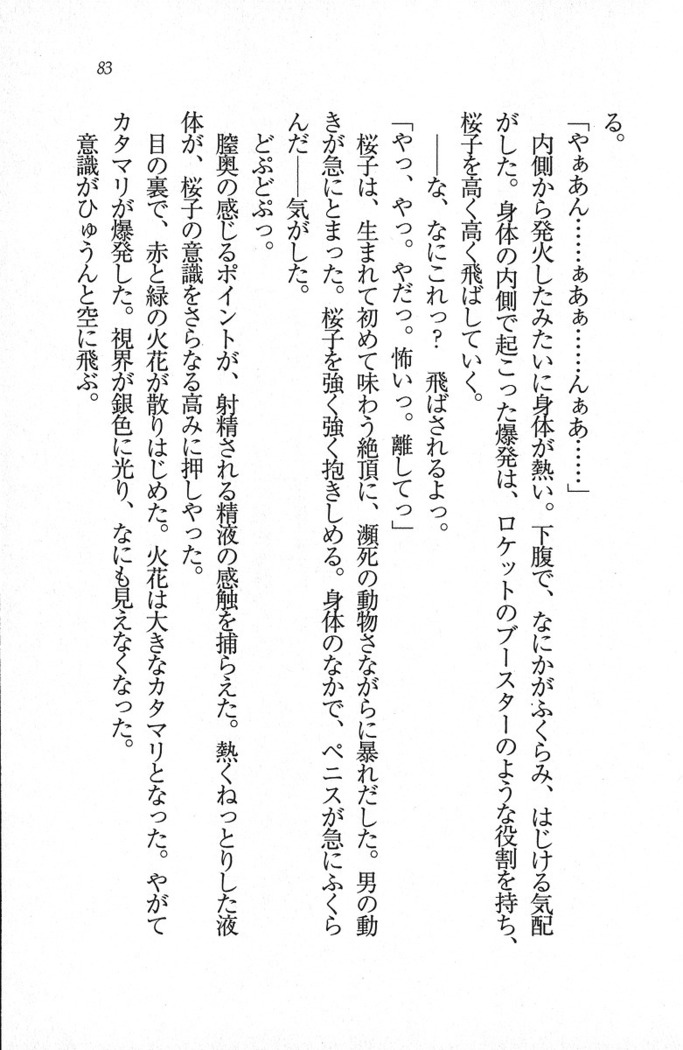 83
る。
「やぁあん……ぁあぁ……んぁあ……」
内側から発火したみたいに身体が熱い。下腹で、なにかがふくらみ、はじける気配
がした。身体の内側で起こった爆発は、ロケットのブースターのような役割を持ち、
桜子を高く高く飛ばしていく。
――な、なにこれっ？　飛ばされるよっ。
「やっ、やっ。やだっ。怖いっ。離してっ」
桜子は、生まれて初めて味わう絶頂に、瀕死の動物さながらに暴れだした。男の動
きが急にとまった。桜子を強く強く抱きしめる。身体のなかで、ペニスが急にふくら
んだ――気がした。
どぷどぷっ。
膣奥の感じるポイントが、射精される精液の感触を捕らえた。熱くねっとりした液
体が、桜子の意識をさらなる高みに押しやった。
目の裏で、赤と緑の火花が散りはじめた。火花は大きなカタマリとなった。やがて
カタマリが爆発した。視界が銀色に光り、なにも見えなくなった。
意識がひゅうんと空に飛ぶ。